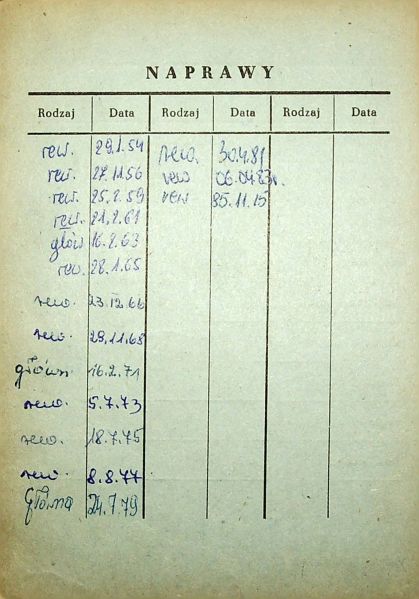 NAPRAWY
Rodzaj Data Rodzaj Data Rodzaj Data
rew. 29.1.54 rew. 30.4.81
rew. 27.11.56 rew 06.04.83r.
rew. 25.2.59 rew 85.11.15
rew. 21.2.61
głów 16.2.63
rew. 28.1.65
rew. 23.12.66
rew. 29.11.68
główn 16.2.71
rew. 5.7.73
rew. 18.7.75
rew. 8.8.77
Główna 24.7.79